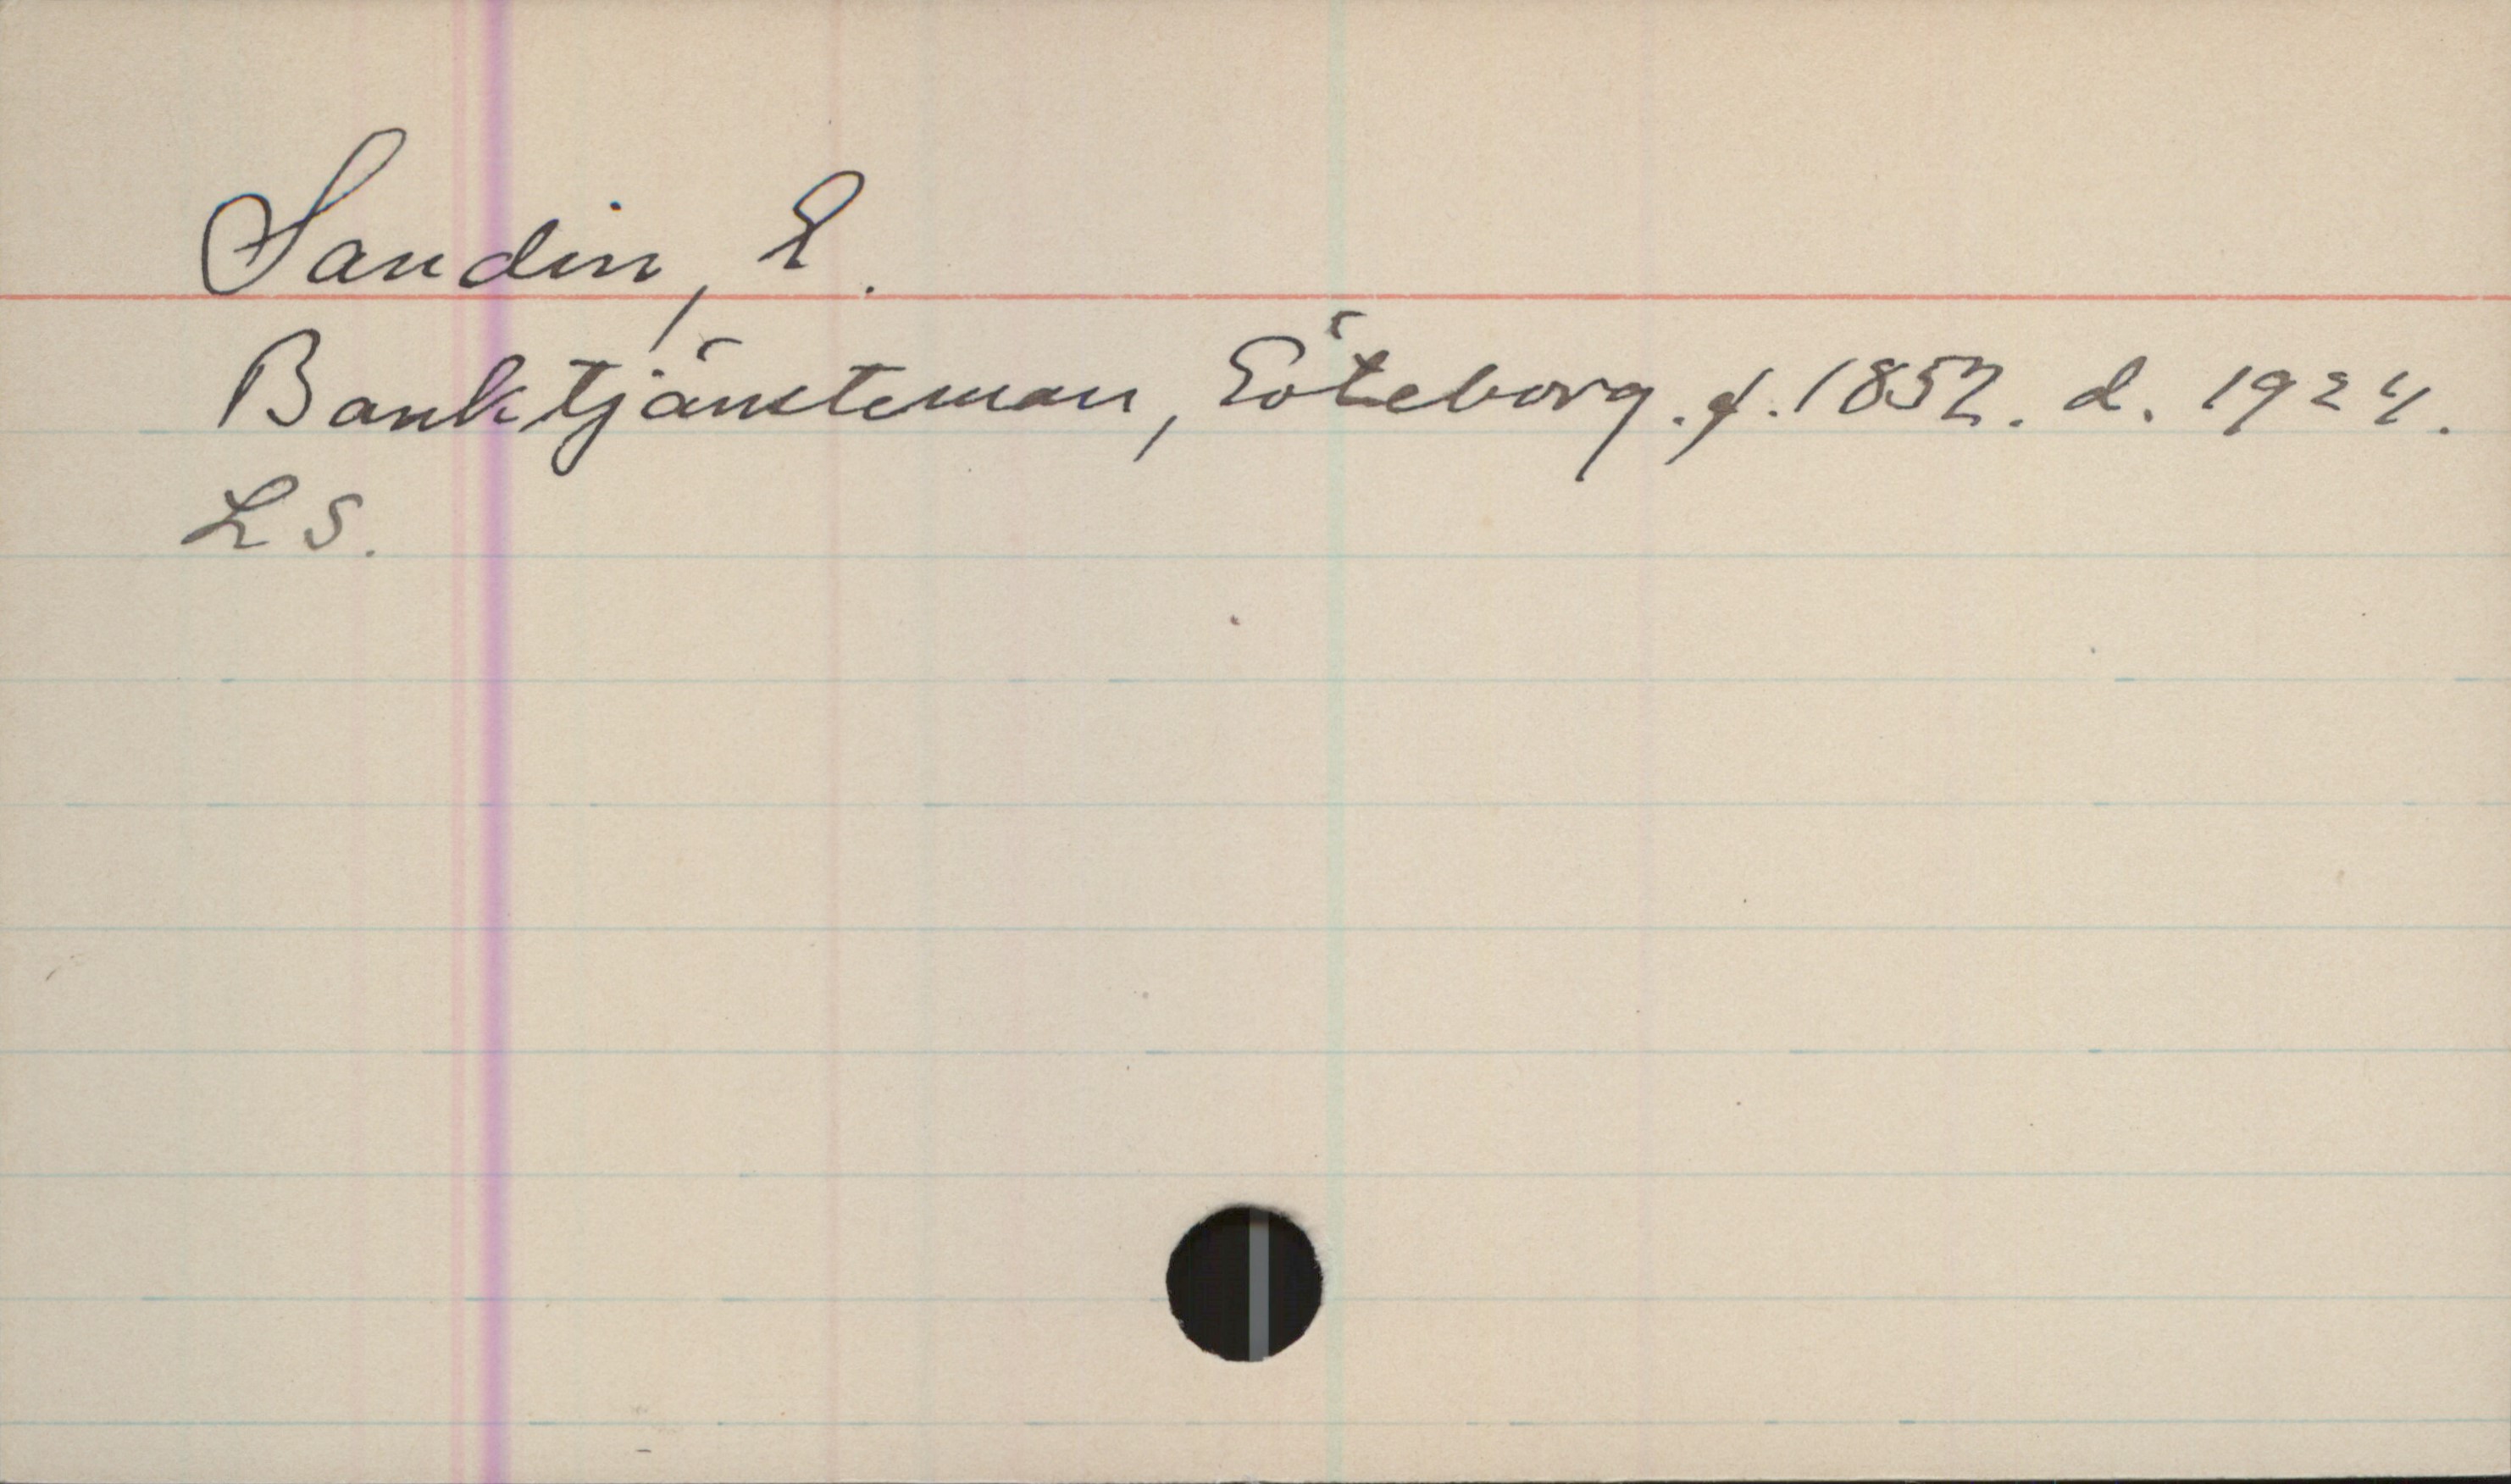 Sandin, E.
Banktjänsteman, Göteborg. f. 1852. d. 1924.
LS.